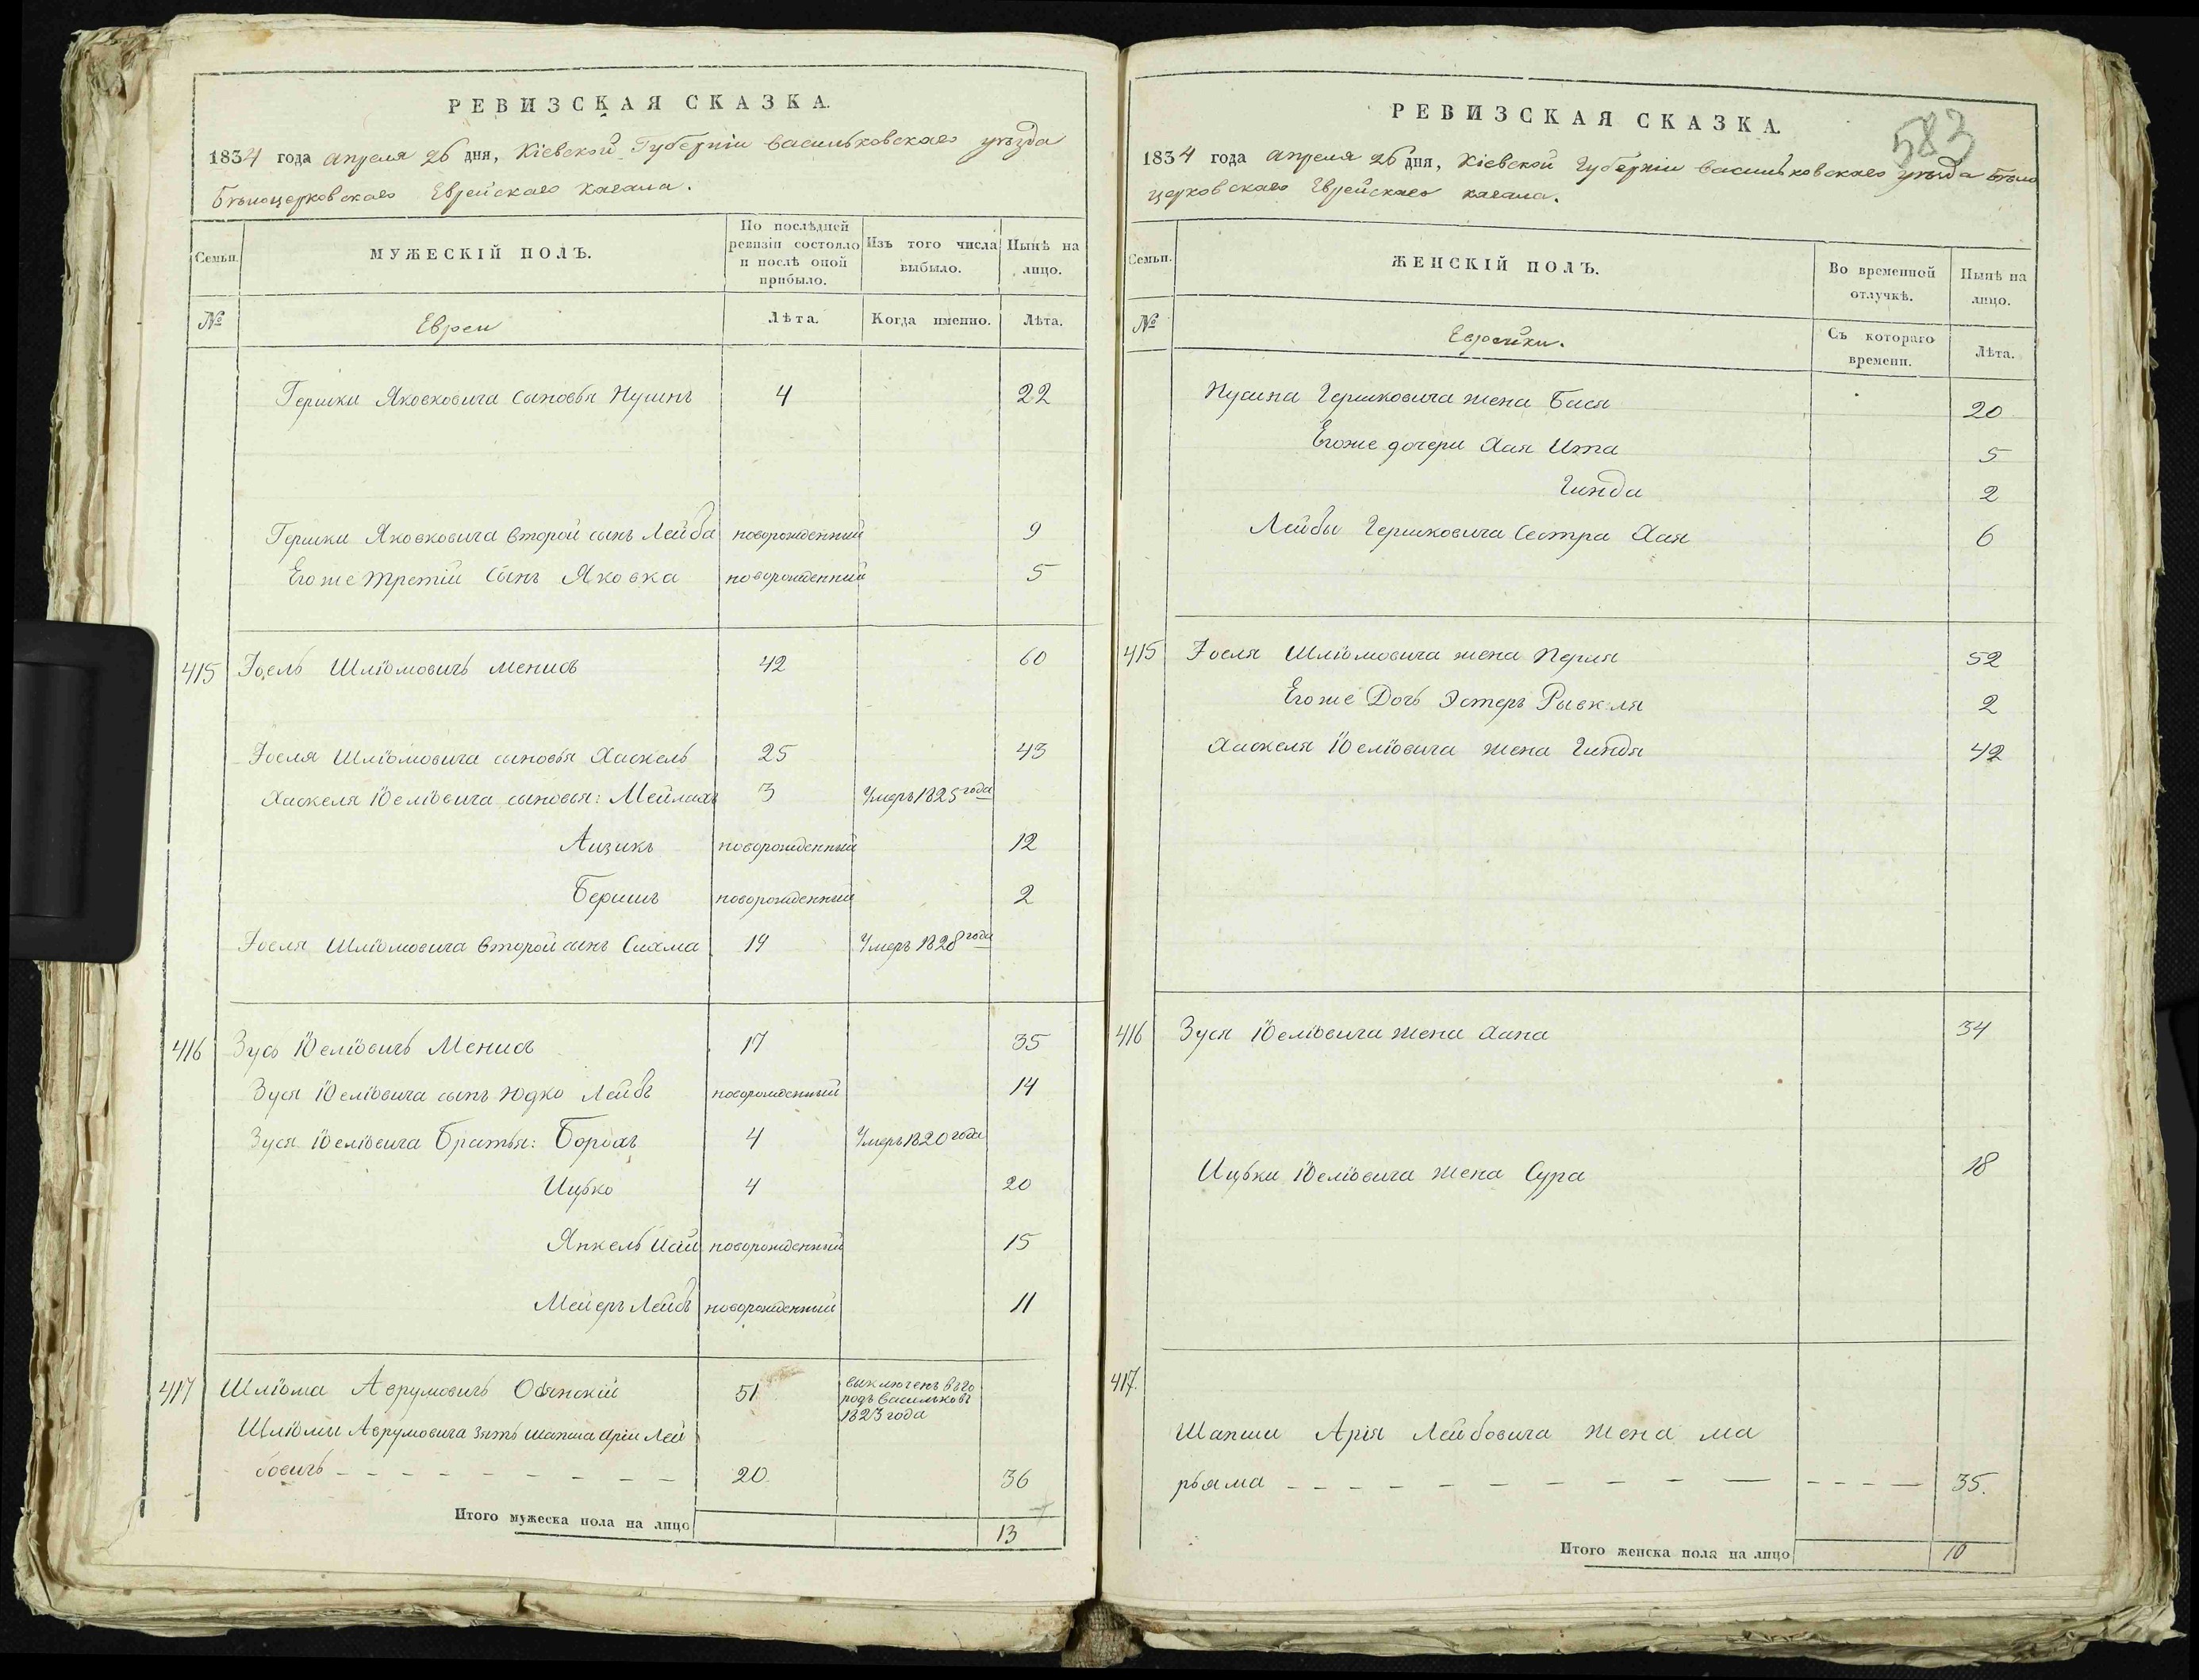 РЕВИЗСКАЯ СКАЗКА.
1834 года апреля 26 дня, Кіевской Губерніи Васильковскаго уѣзда
Бѣлоцерковскаго Еврейскаго кагала.
Семьи.
МУЖЕСКІЙ ПОЛЪ.
По послѣдней ревизіи состояло и послѣ оной прибыло.
Изъ того числа выбыло.
Нынѣ на лицо.
№
Евреи
Лѣта.
Когда именно.
Лѣта.
Гершки Яковковича сыновья Нусинъ 4 22
Гершки Яковковича второй сынъ Лейба новорожденный 9
Его же третій сынъ Яковка новорожденный 5
415 Іосль Шліомовичъ Менисъ 42 60
Іосля Шліомовича сыновья Хаскель 25 43
Хаскеля Іоеліовича сыновья: Мейлахъ 3 Умеръ 1825 года
Аизикъ новорожденный 12
Бершъ новорожденный 2
Іосля Шліомовича второй сынъ Сиома 19 Умеръ 1828 года
416 Зусь Іоеліовичъ Менисъ 17 35
Зуся Іоеліовича сынъ Юдко Лейбъ новорожденный 14
Зуся Іоеліовича Братья: Борохъ 4 Умеръ 1820 года
Ицько 4 20
Янкель новорожденный 15
Мейеръ Лейбъ новорожденный 11
417 Шліома Аврумовичъ 51 выключенъ въ го
родъ Васильковъ
1823 года
Шліомы Аврумовича зять Шапша Арія Лей
бовичъ 20 36
Итого мужеска пола на лицо 13
РЕВИЗСКАЯ СКАЗКА.
583
1834 года апреля 26 дня, Кіевской Губерніи Васильковскаго уѣзда Бѣло
церковскаго Еврейскаго кагала.
Семьи.
ЖЕНСКІЙ ПОЛЪ.
Во временной отлучкѣ.
Нынѣ на лицо.
№
Еврейки.
Съ котораго времени.
Лѣта.
Нусина Гершковича жена Бася 20
Его же дочери Хая Ита 5
Гинда 2
Лейбы Гершковича сестра Хая 6
415 Іосля Шліомовича жена Перля 52
Его же Дочь Эстеръ Рывкля 2
Хаскеля Іоеліовича жена Гиндя 42
416 Зуся Іоеліовича жена Хана 34
Ицьки Іоеліовича жена Сура 18
417.
Шапши Арія Лейбовича жена ма
рьяма 35.
Итого женска пола на лицо 10